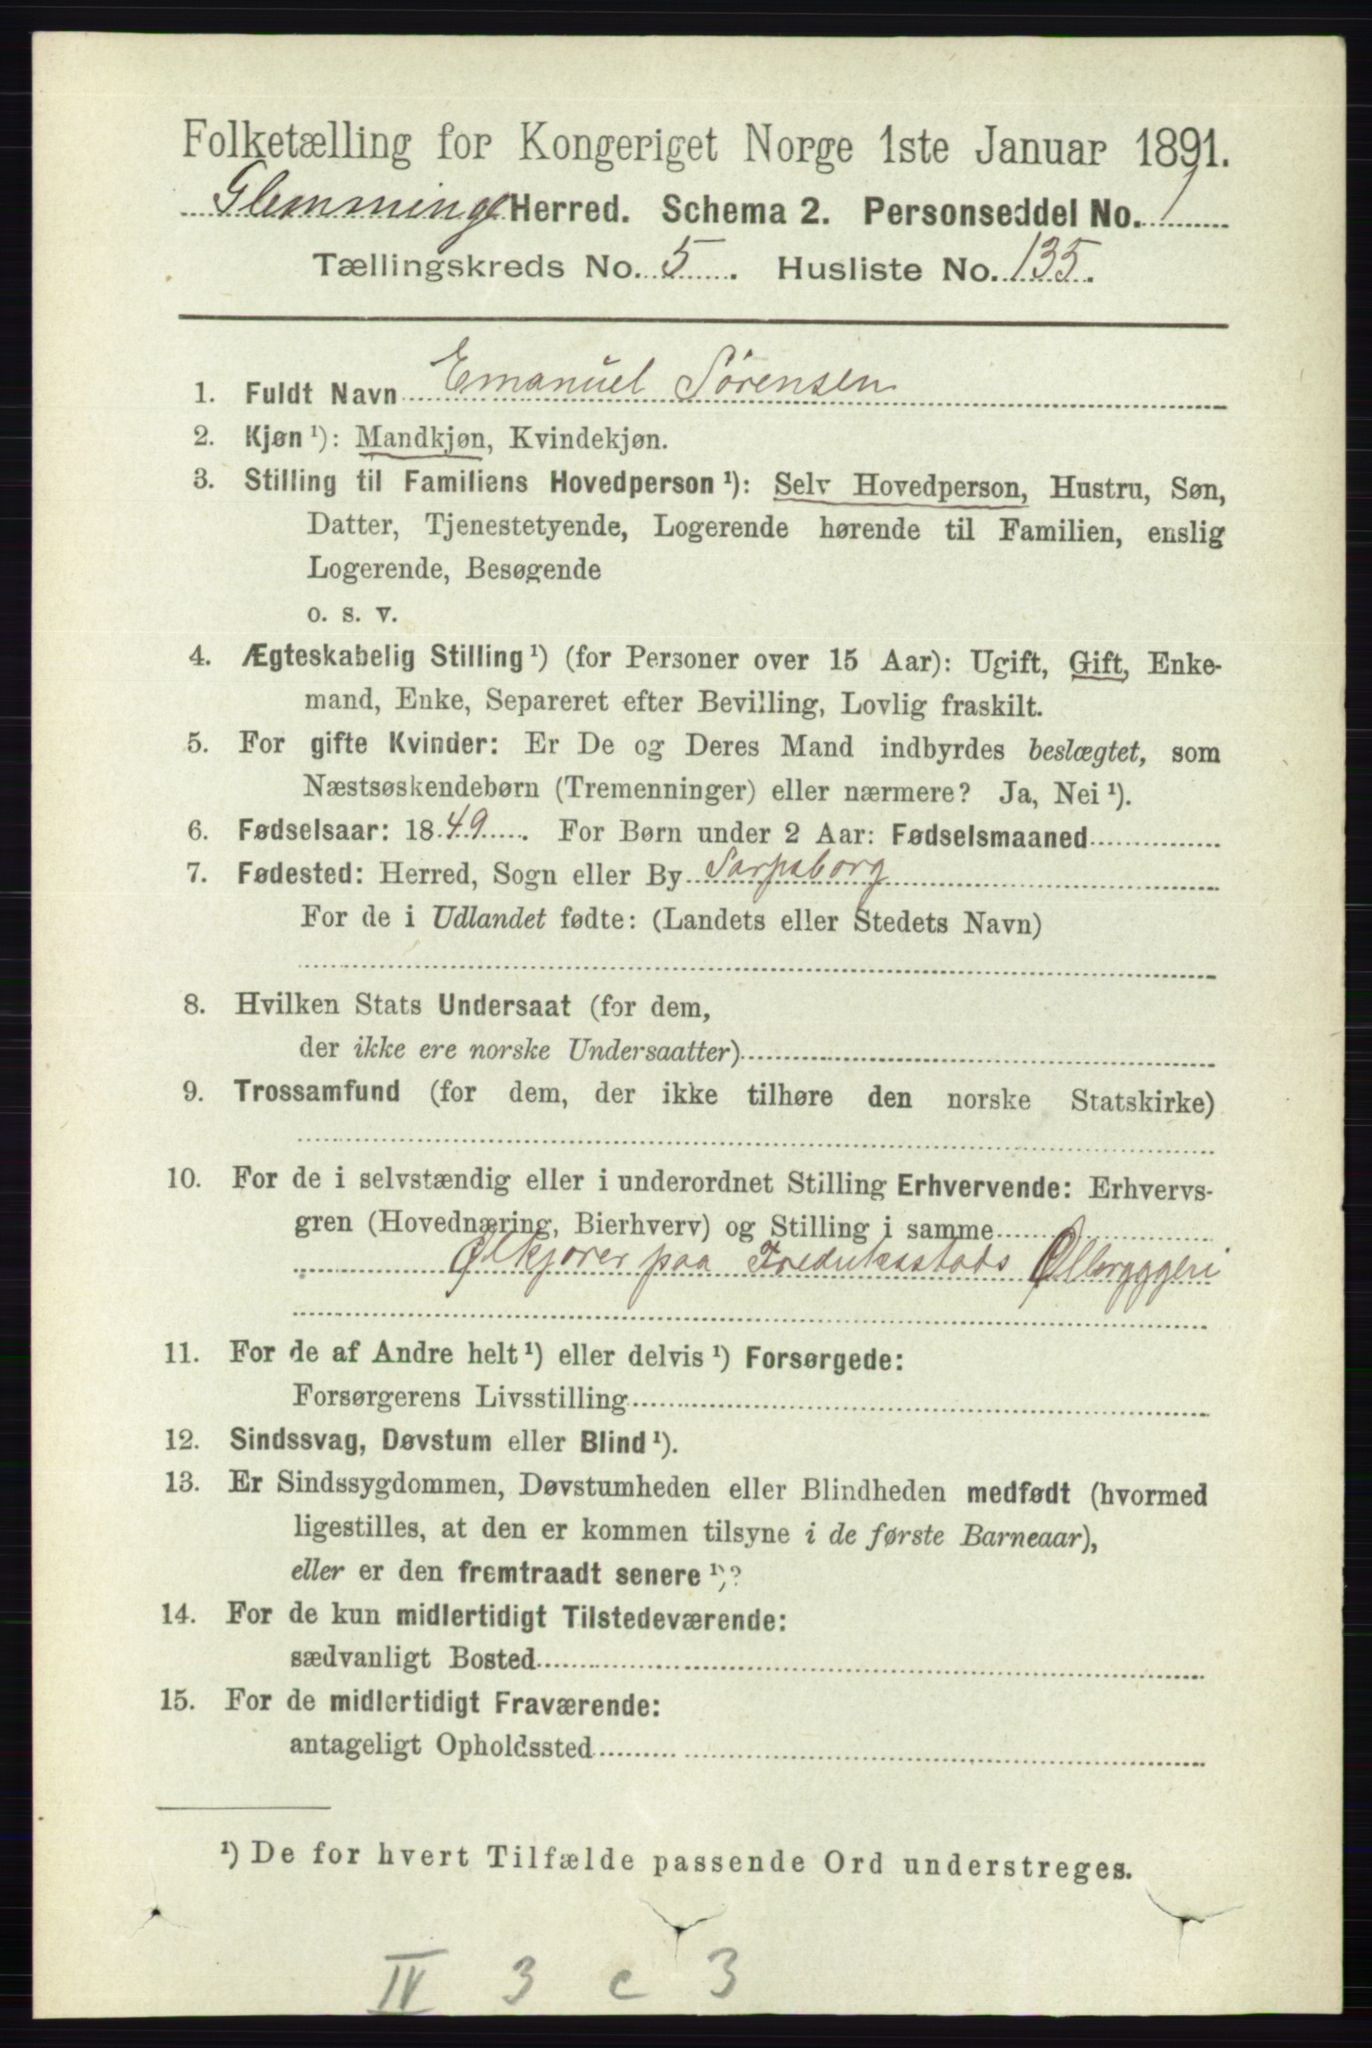 Folketælling for Kongeriget Norge 1ste Januar 1891.
Glemminge Herred. Schema 2. Personseddel No. 1
Tællingskreds No. 5. Husliste No. 135.
1. Fuldt Navn Emanuel Sørensen
2. Kjøn ¹): Mandkjøn, Kvindekjøn.
3. Stilling til Familiens Hovedperson ¹): Selv Hovedperson, Hustru, Søn,
Datter, Tjenestetyende, Logerende hørende til Familien, enslig
Logerende, Besøgende
o. s. v.
4. Ægteskabelig Stilling ¹) (for Personer over 15 Aar): Ugift, Gift, Enke-
mand, Enke, Separeret efter Bevilling, Lovlig fraskilt.
5. For gifte Kvinder: Er De og Deres Mand indbyrdes beslægtet, som
Næstsøskendebørn (Tremenninger) eller nærmere? Ja, Nei ¹).
6. Fødselsaar: 1849. For Børn under 2 Aar: Fødselsmaaned
7. Fødested: Herred, Sogn eller By Sarpsborg
For de i Udlandet fødte: (Landets eller Stedets Navn)
8. Hvilken Stats Undersaat (for dem,
der ikke ere norske Undersaatter)
9. Trossamfund (for dem, der ikke tilhøre den norske Statskirke)
10. For de i selvstændig eller i underordnet Stilling Erhvervende: Erhvervs-
gren (Hovednæring, Bierhverv) og Stilling i samme
Ølkjører paa Fredrikstads Ølbryggeri
11. For de af Andre helt ¹) eller delvis ¹) Forsørgede:
Forsørgerens Livsstilling
12. Sindssvag, Døvstum eller Blind ¹).
13. Er Sindssygdommen, Døvstumheden eller Blindheden medfødt (hvormed
ligestilles, at den er kommen tilsyne i de første Barneaar),
eller er den fremtraadt senere ¹)?
14. For de kun midlertidigt Tilstedeværende:
sædvanligt Bosted
15. For de midlertidigt Fraværende:
antageligt Opholdssted
¹) De for hvert Tilfælde passende Ord understreges.
IV 3 c 3